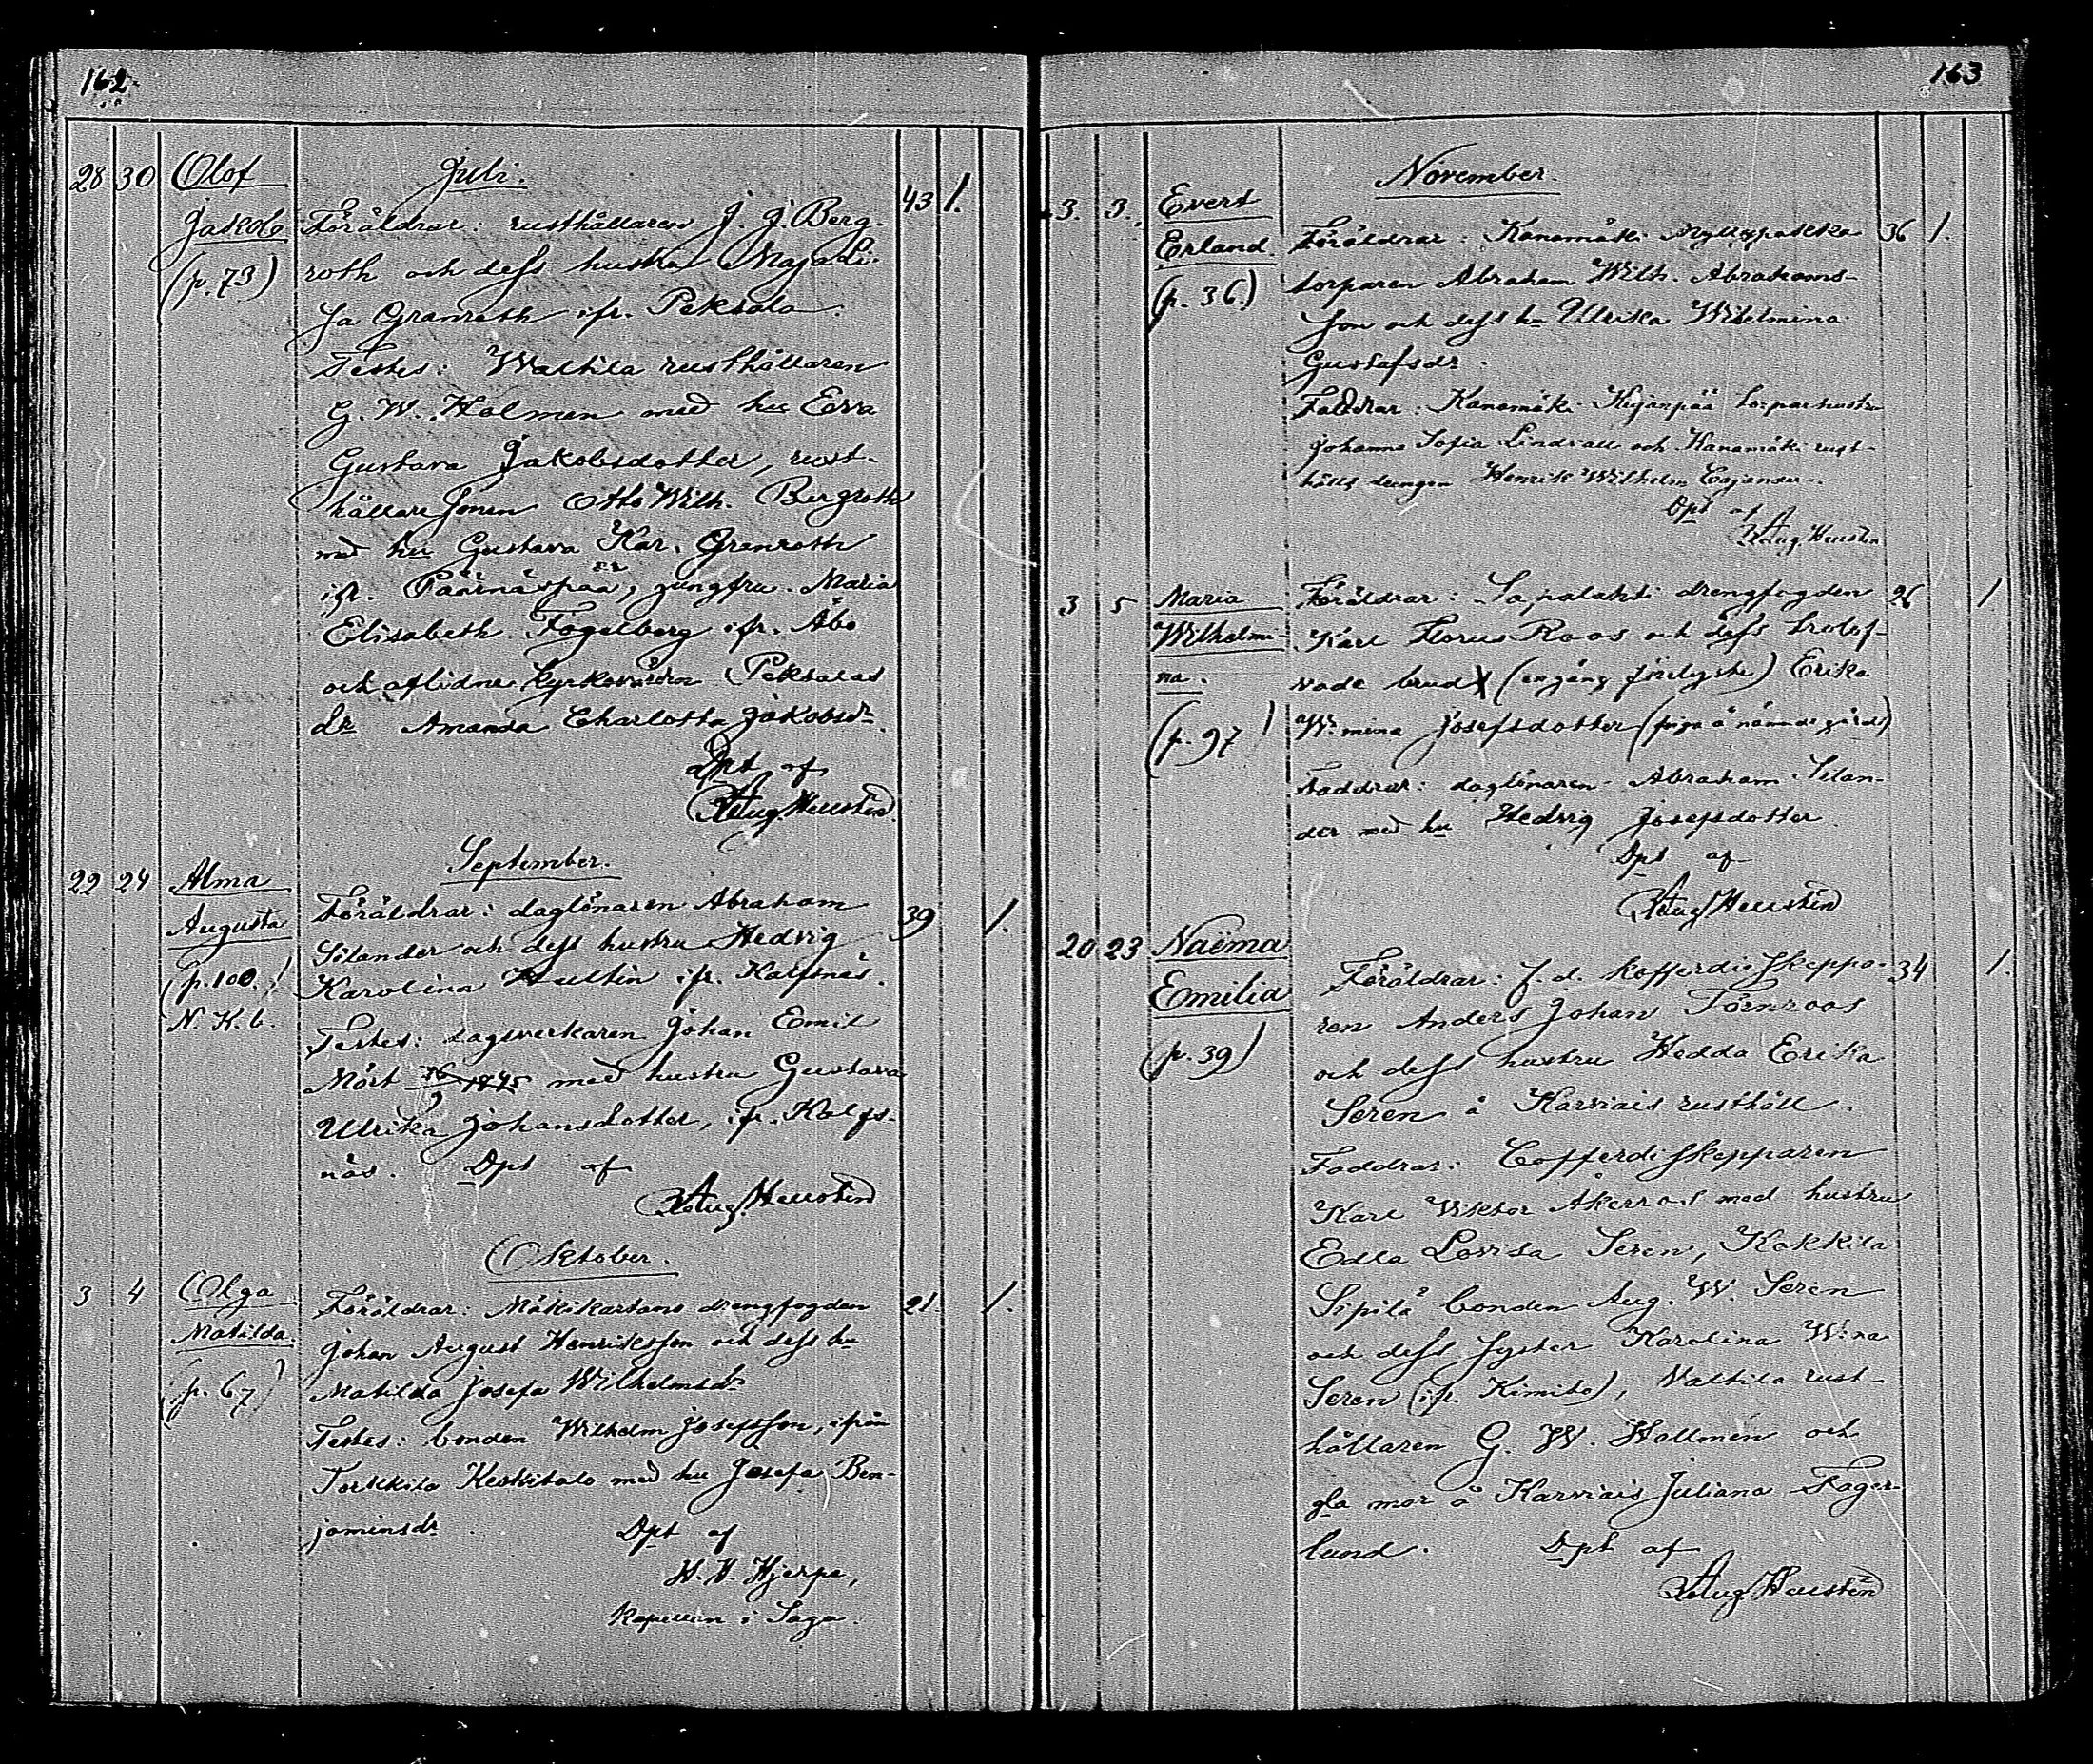 162.
Juli.
28 30 Olof
Jakob Föräldrar: rusthållaren J. J. Berg- 43 1.
(p. 73) roth och dess hustru Maja Li-
sa Granroth ifr. Peksala.
Testes: Waltila rusthållaren
G. W. Holmen med hu Eva
Gustava Jakobsdotter, rust-
hållare sonen Otto Wilh. Bergroth
med hu Gustava Kar. Granroth
ifr. Päärnäspää, jungfru Maria
Elisabeth Fogelberg ifr. Åbo
och aflidne kyrkovärden Peksalas
dr Amanda Charlotta Jakobsdr.
Dpt af
Aug. Heurlin
September.
22 24 Alma
Augusta Föräldrar: daglönaren Abraham 39 1.
Silander och dess hustru Hedvig
(p. 100.) Karolina Hultin ifr. Kalfsnäs.
N. K. b. Testes: dagsverkaren Johan Emil
Mört med hustru Gustava
Ulrika Johansdotter, ifr. Kalfs-
näs. Dpt af
Aug. Heurlin
Oktober.
3 4 Olga Föräldrar: Mäkikartano drengfogden 21 1.
Matilda. Johan August Henriksson och dess hu
(p. 67) Matilda Josefa Wilhelmsdr
Testes: bonden Wilhelm Josefsson, ifrån
Torkkila Keskitalo med hu Josefa Ben-
jaminsdr. Dpt af
H. H. Hjerpe,
Kapellan i Sagu.
163
November.
3. 3. Evert
Erland. Föräldrar: Kanamäki 36 1.
(p. 36.) torparen Abraham Wilh. Abrahams-
son och dess hu Ulrika Wilelmina
Gustafsdr.
Faddrar: Kanamäki torparhustru
Johanna Sofia Lindvall och Kanamäki rust-
hålls drengen Henrik Wilhelm Cajander.
Dpt af
Aug. Heurlin
3 5 Maria Föräldrar: Sapalahti drengfogden 26 1
Wilhelmi- Karl Florus Roos och dess trolof-
na. vade brud (engång förelyste) Erika
(p. 97) W:mina Josefsdotter (piga å nämnde gård)
Faddrar: daglönaren Abraham Silan-
der med hu Hedvig Josefsdotter.
Dpt af
Aug. Heurlin
20 23 Naëma
Emilia Föräldrar: f. d. kofferdieskeppa- 34 1.
ren Anders Johan Törnroos
(p. 39) och dess hustru Hedda Erika
Seren å Karviais rusthåll.
Faddrar: Cofferdiskepparen
Karl Viktor Åkerros med hustru
Edla Lovisa Seren, Kokkila
Sipilä bonden Aug. W. Seren
och dess syster Karolina W:na
Seren (ifr. Kimito), Valtila rust-
hållaren G. W. Hollmén och
gla mor å Karviais Juliana Fager-
lund. Dpt af
Aug. Heurlin